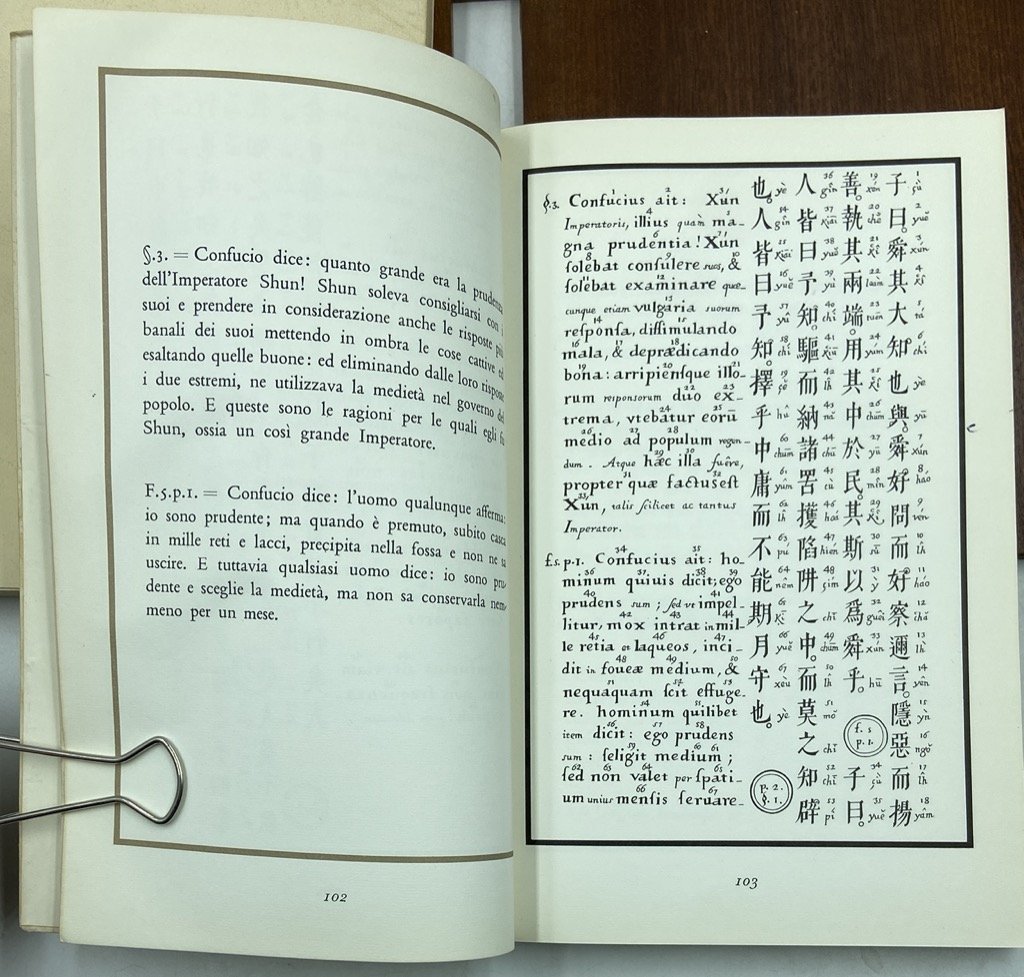 §.3. = Confucio dice: quanto grande era la prudenza
dell'Imperatore Shun! Shun soleva consigliarsi con i
suoi e prendere in considerazione anche le risposte più
banali dei suoi mettendo in ombra le cose cattive ed
esaltando quelle buone: ed eliminando dalle loro risposte
i due estremi, ne utilizzava la medietà nel governo del
popolo. E queste sono le ragioni per le quali egli fu
Shun, ossia un così grande Imperatore.
F.5.p.1. = Confucio dice: l'uomo qualunque afferma:
io sono prudente; ma quando è premuto, subito casca
in mille reti e lacci, preçipita nella fossa e non ne sa
uscire. E tuttavia qualsiasi uomo dice: io sono pru-
dente e sceglie la medietà, ma non sa conservarla nem-
meno per un mese.
102
§.3. Confucius ait: Xún
Imperatoris, illius quàm ma-
gna prudentia! Xún
ſolebat conſulere suos, &
ſolebat examinare quæ-
cunque etiam vulgaria suorum
reſponſa, diſſimulando
mala, & deprædicando
bona: arripienſque illo-
rum responsorum duo ex-
trema, vtebatur eorū
medio ad populum regen-
dum. Atque hæc illa fuêre,
propter quæ factus eſt
Xún, talis ſcilicet ac tantus
Imperator.
f.5. p.1. Confucius ait: ho-
minum quiuis dicit; ego
prudens sum; ſed vt impel-
litur, mox intrat in mil-
le retia et laqueos, inci-
dit in foueæ medium, &
nequaquam ſcit effuge-
re. hominum quilibet
item dicit: ego prudens
sum: ſeligit medium;
ſed non valet per ſpati-
um unius menſis ſeruare.
子曰。舜其大知也與。舜好問而好察邇言。隱惡而揚
善。執其兩端。用其中於民。其斯以爲舜乎。 f.5 p.1. 子曰。
人皆曰予知。驅而納諸罟擭陷阱之中。而莫之知辟
也。人皆曰予知。擇乎中庸而不能期月守也。 p.2. §.1.
103